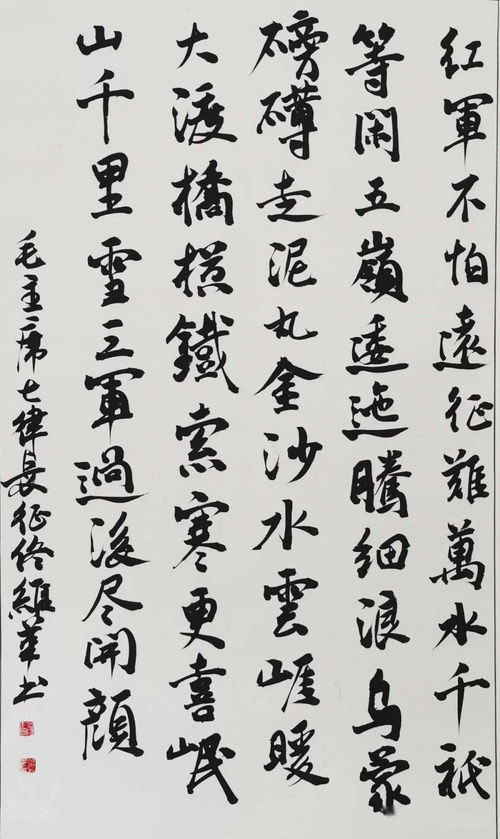 红軍不怕遠征難萬水千祇
等閑五嶺逶迤騰細浪乌蒙
磅礴走泥丸金沙水雲崖暖
大渡橋橫鐵索寒更喜岷
山千里雪三軍過後尽開顔
毛主席七律長征佟維華书